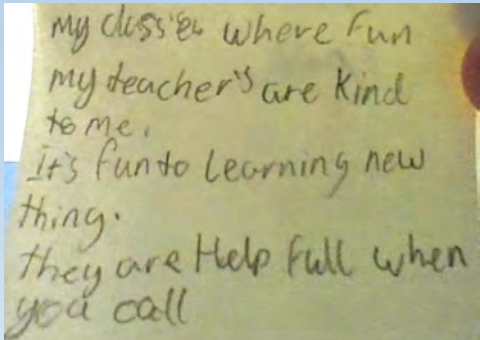 my class'es where fun
my teacher's are kind
to me.
It's fun to Learning new
thing.
they are Help full when
you call